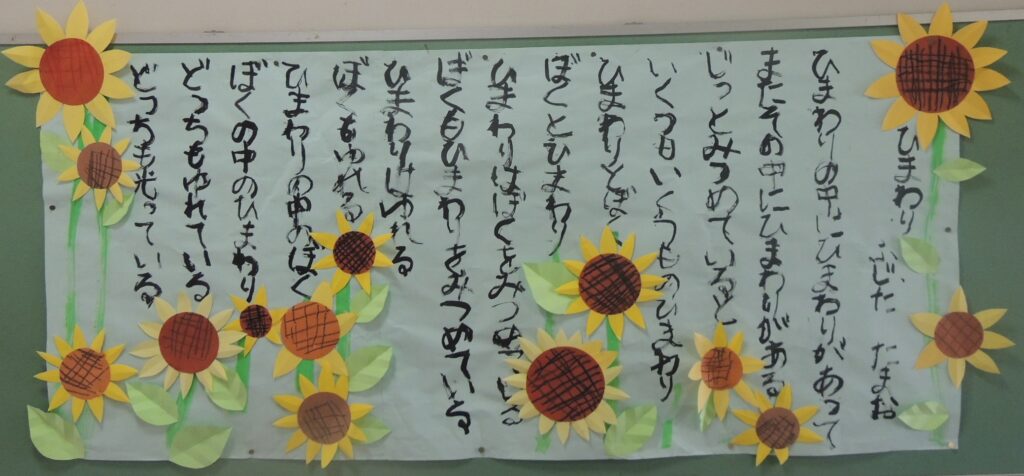 ひまわり
ふじた たまお
ひまわりの中にひまわりがあって
またその中にひまわりがある
じっとみつめていると
いくつもいくつものひまわり
ひまわりとぼく
ぼくとひまわり
ひまわりはぼくをみつめている
ぼくもひまわりをみつめている
ひまわりはゆれる
ぼくもゆれる
ひまわりの中のぼく
ぼくの中のひまわり
どっちもゆれている
どっちも光っている